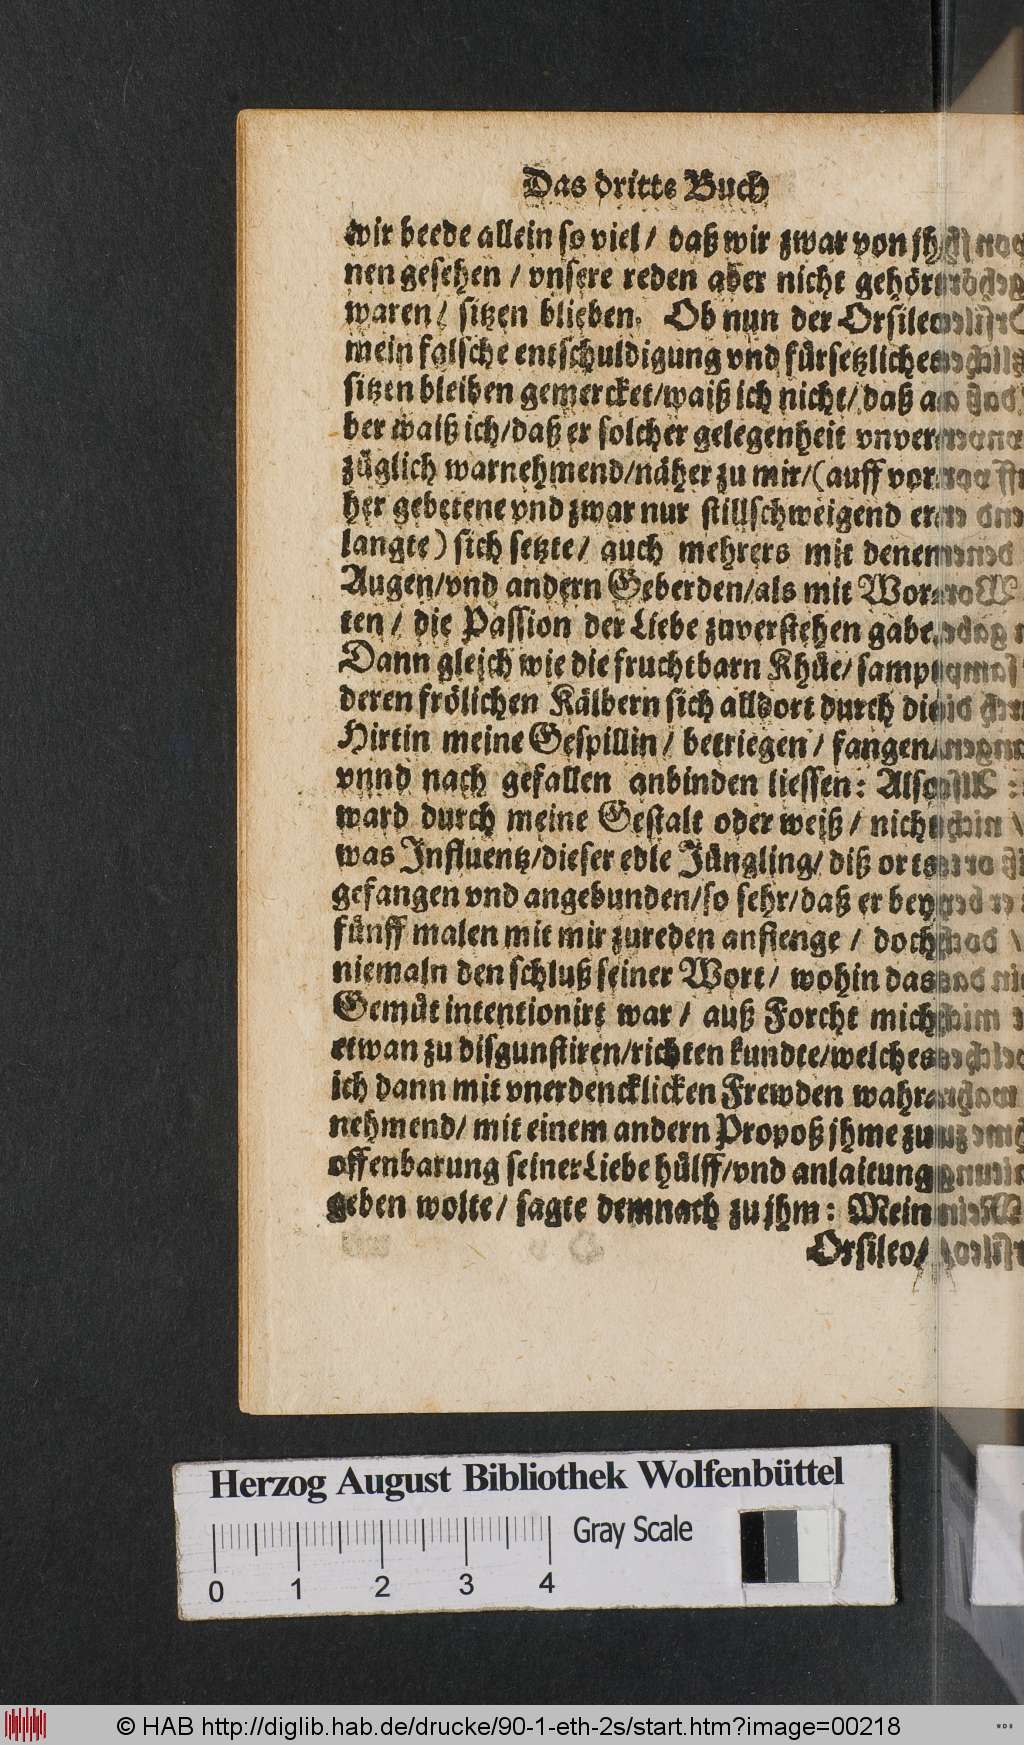 Das dritte Buch
wir beede allein so viel / daß wir zwar von jh-
nen gesehen / vnsere reden aber nicht gehört
waren / sitzen blieben. Ob nun der Orsileo
mein falsche entschuldigung vnd fürsetzliches
sitzen bleiben gemercket/waiß ich nicht/daß a-
ber waiß ich/daß er solcher gelegenheit vnver-
züglich warnehmend/näher zu mir/(auff vor-
her gebetene vnd zwar nur stillschweigend er-
langte) sich setzte/ auch mehrers mit denen
Augen/vnd andern Geberden/als mit Wor-
ten / die Passion der Liebe zuverstehen gabe.
Dann gleich wie die fruchtbarn Khüe/ sampt
deren frölichen Kälbern sich alldort durch die
Hirtin meine Gespillin / betriegen / fangen/
vnnd nach gefallen anbinden liessen: Also
ward durch meine Gestalt oder weiß / nicht
was Influentz/dieser edle Jüngling/ diß orts
gefangen vnd angebunden/so sehr/daß er bey
fünff malen mit mir zureden anfienge / doch
niemaln den schluß seiner Wort/ wohin das
Gemüt intentionirt war / auß Forcht mich
etwan zu disgunstiren/richten kundte/welches
ich dann mit vnerdencklicken Frewden wahr-
nehmend/ mit einem andern Propoß jhme zu
offenbarung seiner Liebe hülff/vnd anlaitung
geben wolte/ sagte demnach zu jhm: Mein
Orsileo/
Herzog August Bibliothek Wolfenbüttel
Gray Scale
0 1 2 3 4
© HAB http://diglib.hab.de/drucke/90-1-eth-2s/start.htm?image=00218